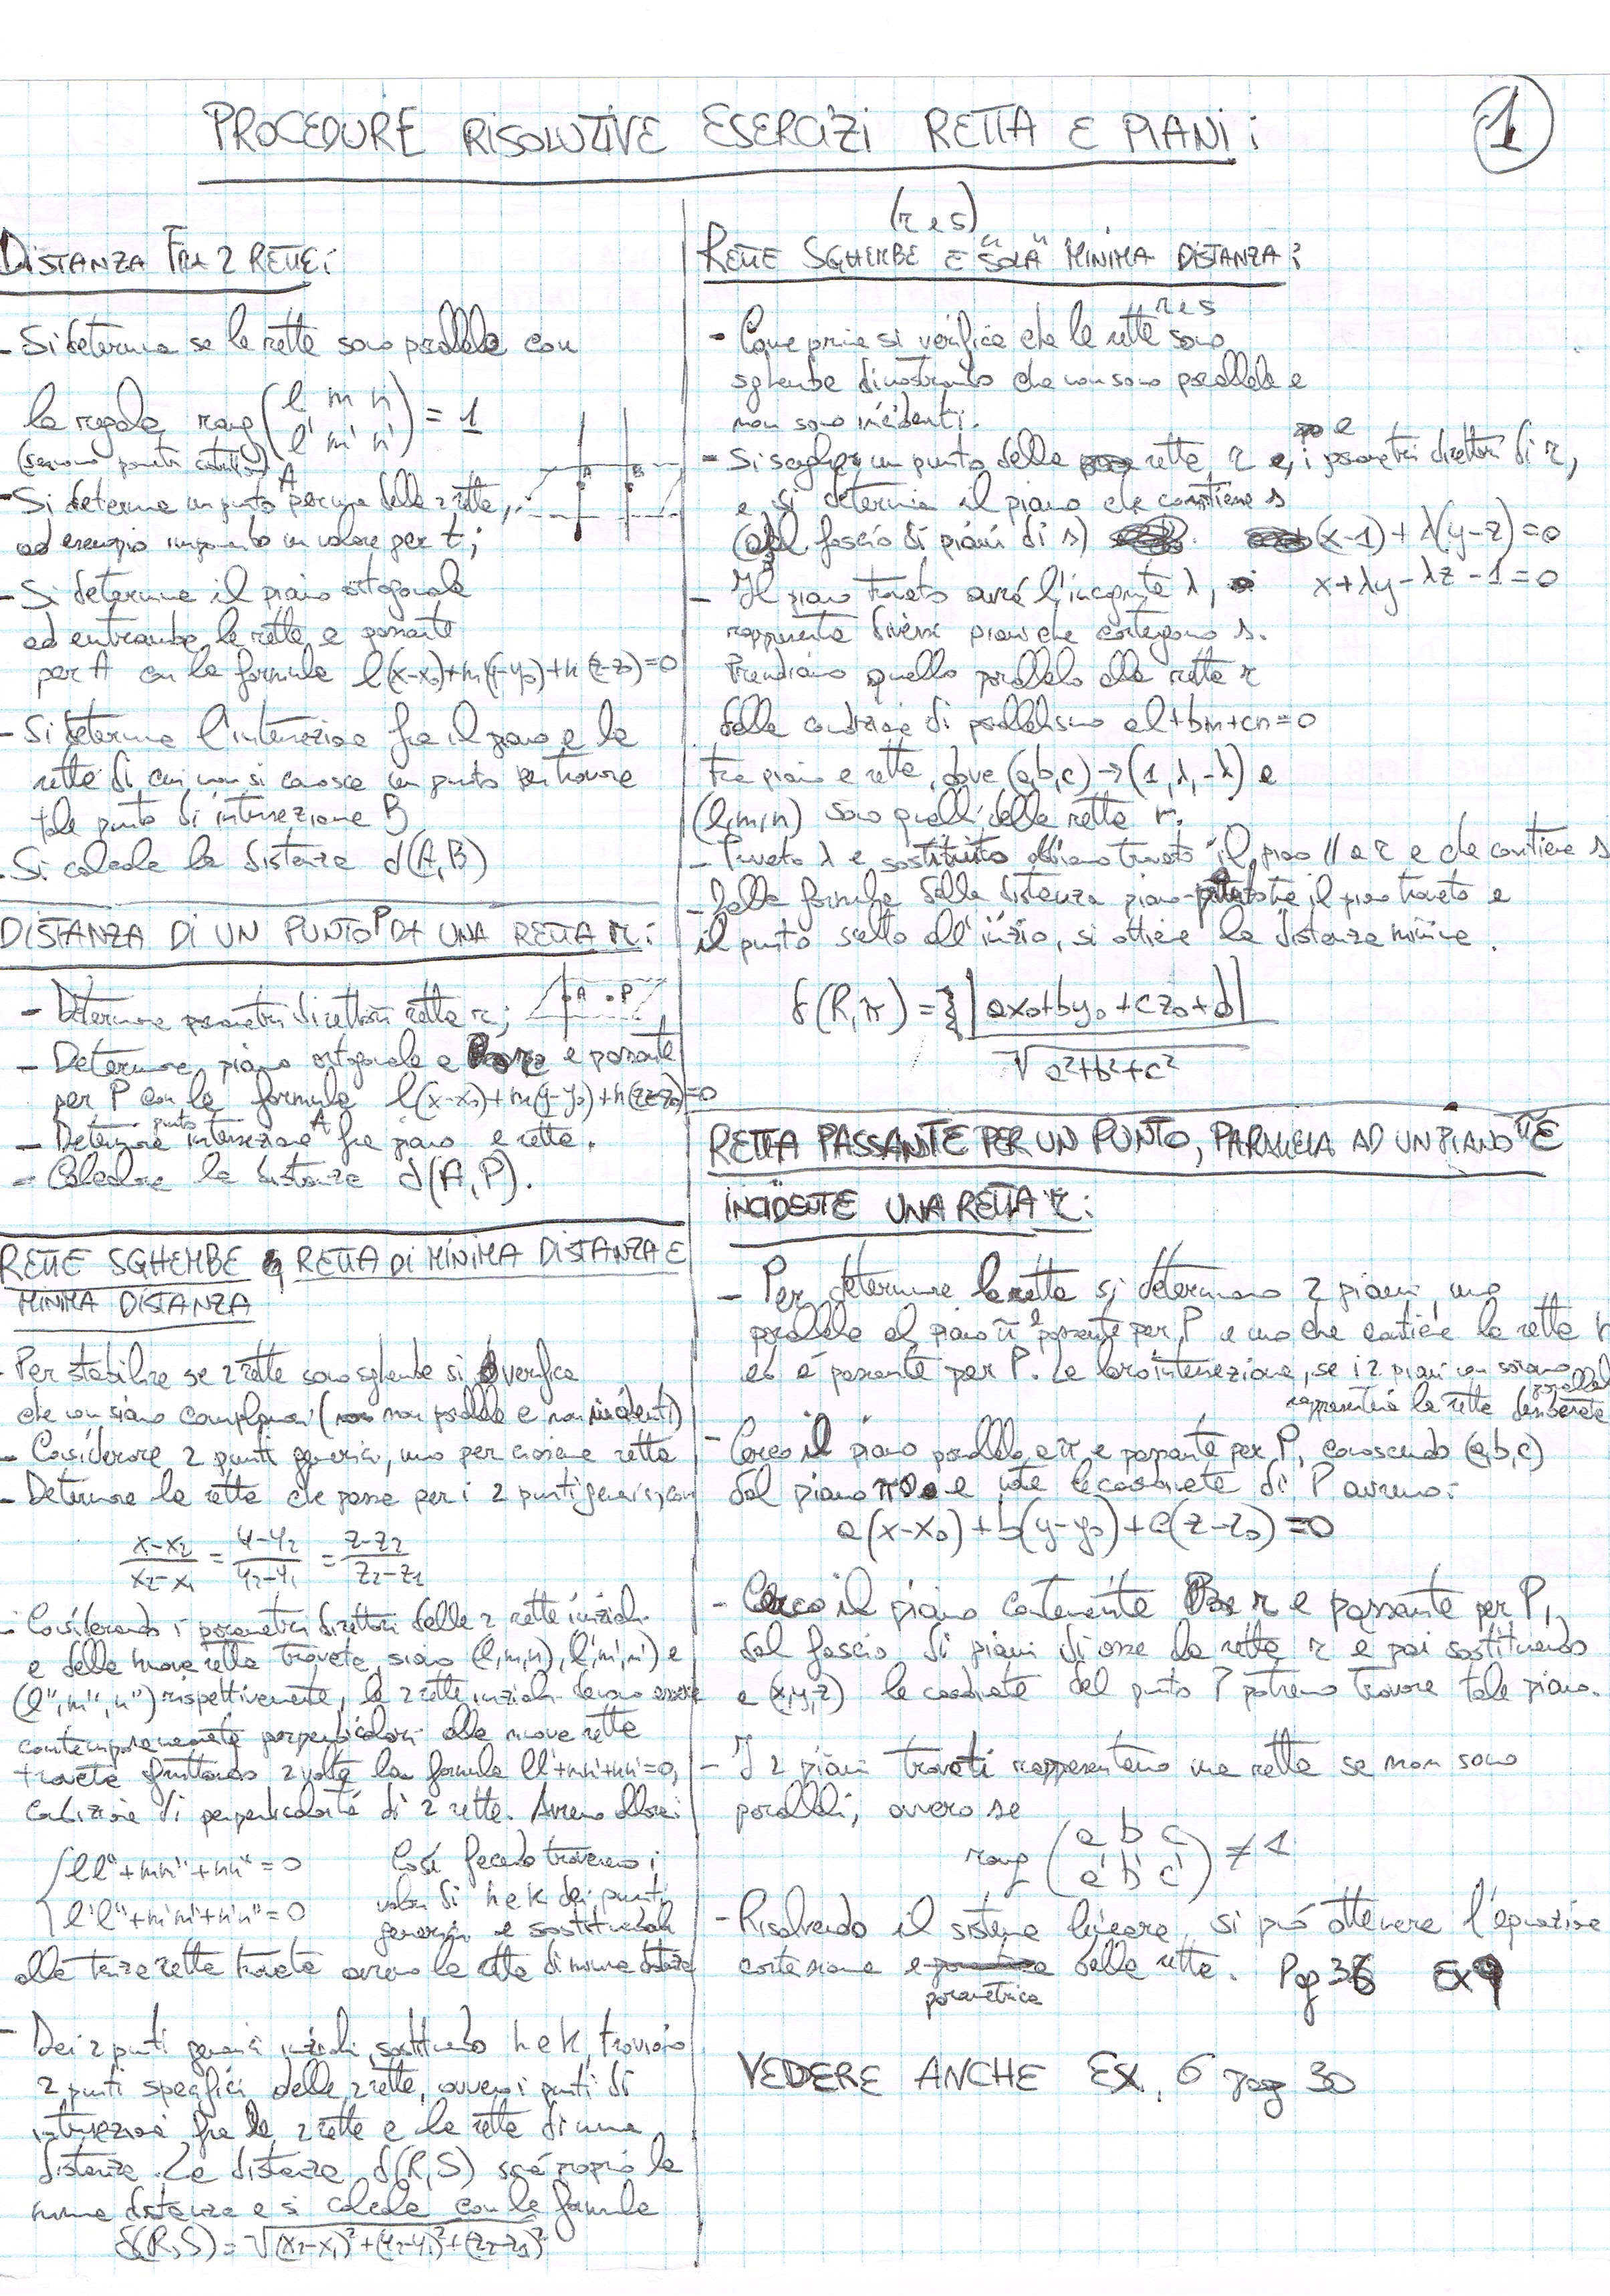 PROCEDURE RISOLUTIVE ESERCIZI RETTA E PIANI:
1
DISTANZA FRA 2 RETTE:
- Si determina se le rette sono parallele con
la regola rang (l m n / l' m' n') = 1
(servono parametri direttori)
- Si determina un punto A per una delle 2 rette,
ad esempio imponendo un valore per t;
- Si determina il piano ortogonale
ad entrambe le rette e passante
per A con la formula l(x-x₀)+m(y-y₀)+n(z-z₀)=0
- Si determina l'intersezione fra il piano e la
retta di cui non si conosce un punto per trovare
tale punto di intersezione B
- Si calcola la distanza d(A,B)
A B
DISTANZA DI UN PUNTO P DA UNA RETTA r:
- Determinare parametri direttori retta r;
A P
- Determinare piano ortogonale a r e passante
per P con la formula l(x-x₀)+m(y-y₀)+n(z-z₀)=0
- Determinare punto intersezione A fra piano e retta.
- Calcolare la distanza d(A,P).
RETTE SGHEMBE RETTA DI MINIMA DISTANZA E
MINIMA DISTANZA
- Per stabilire se 2 rette sono sghembe si verifica
che non siano complanari (non parallele e non incidenti)
- Considerare 2 punti generici, uno per ciascuna retta
- Determinare la retta che passa per i 2 punti generici, con
x-x₂/x₂-x₁ = y-y₂/y₂-y₁ = z-z₂/z₂-z₁
- Considerando i parametri direttori delle 2 rette iniziali
e della nuova retta trovata, siano (l,m,n), (l',m',n') e
(l'',m'',n'') rispettivamente, le 2 rette iniziali devono essere
contemporaneamente perpendicolari alla nuova retta
trovata sfruttando 2 volte la formula ll'+mm'+nn'=0,
condizione di perpendicolarità di 2 rette. Avremo allora:
{ ll''+mm''+nn''=0
l'l''+m'm''+n'n''=0
Così facendo troveremo i
valori di h e k dei punti
generici e sostituendoli
alla terza retta trovata avremo la retta di minima distanza
- Dei 2 punti generici iniziali, sostituendo h e k, troviamo
2 punti specifici delle 2 rette, ovvero i punti di
intersezione fra le 2 rette e la retta di minima
distanza. La distanza d(R,S) sarà proprio la
minima distanza e si calcola con la formula
d(R,S) = √(x₂-x₁)²+(y₂-y₁)²+(z₂-z₁)²
(r e s)
RETTE SGHEMBE E "SOLA" MINIMA DISTANZA:
- Come prima si verifica che le rette r e s sono
sghembe dimostrando che non sono parallele e
non sono incidenti.
- Si sceglie un punto della retta r e i parametri direttori di r,
e si determina il piano che contiene s
(dal fascio di piani di s) (x-1)+λ(y-z)=0
- Il piano trovato avrà l'incognita λ, x+λy-λz-1=0
rappresenta diversi piani che contengono s.
Prendiamo quello parallelo alla retta r
dalla condizione di parallelismo al+bm+cn=0
tra piano e retta, dove (a,b,c)→(1,λ,-λ) e
(l,m,n) sono quelli della retta r.
- Trovato λ e sostituito abbiamo trovato il piano // a r e che contiene s
- Dalla formula della distanza piano-punto tra il piano trovato e
il punto scelto all'inizio, si ottiene la distanza minima.
δ(R,π) = |ax₀+by₀+cz₀+d| / √a²+b²+c²
RETTA PASSANTE PER UN PUNTO, PARALLELA AD UN PIANO π E
INCIDENTE UNA RETTA r:
- Per determinare la retta si determinano 2 piani, uno
parallelo al piano π e passante per P e uno che contiene la retta r
ed è passante per P. La loro intersezione, se i 2 piani non saranno paralleli
rappresenterà la retta desiderata
- Cerco il piano parallelo a π e passante per P, conoscendo (a,b,c)
dal piano π e note le coordinate di P avremo:
a(x-x₀)+b(y-y₀)+c(z-z₀)=0
- Cerco il piano contenente r e passante per P,
dal fascio di piani di asse la retta r e poi sostituendo
a (x,y,z) le coordinate del punto P potremo trovare tale piano.
- I 2 piani trovati rappresentano una retta se non sono
paralleli, ovvero se
rang (a b c / a' b' c') ≠ 1
- Risolvendo il sistema lineare si può ottenere l'equazione
cartesiana e parametrica della retta. Pag 36 Ex 9
VEDERE ANCHE EX. 6 pag 30